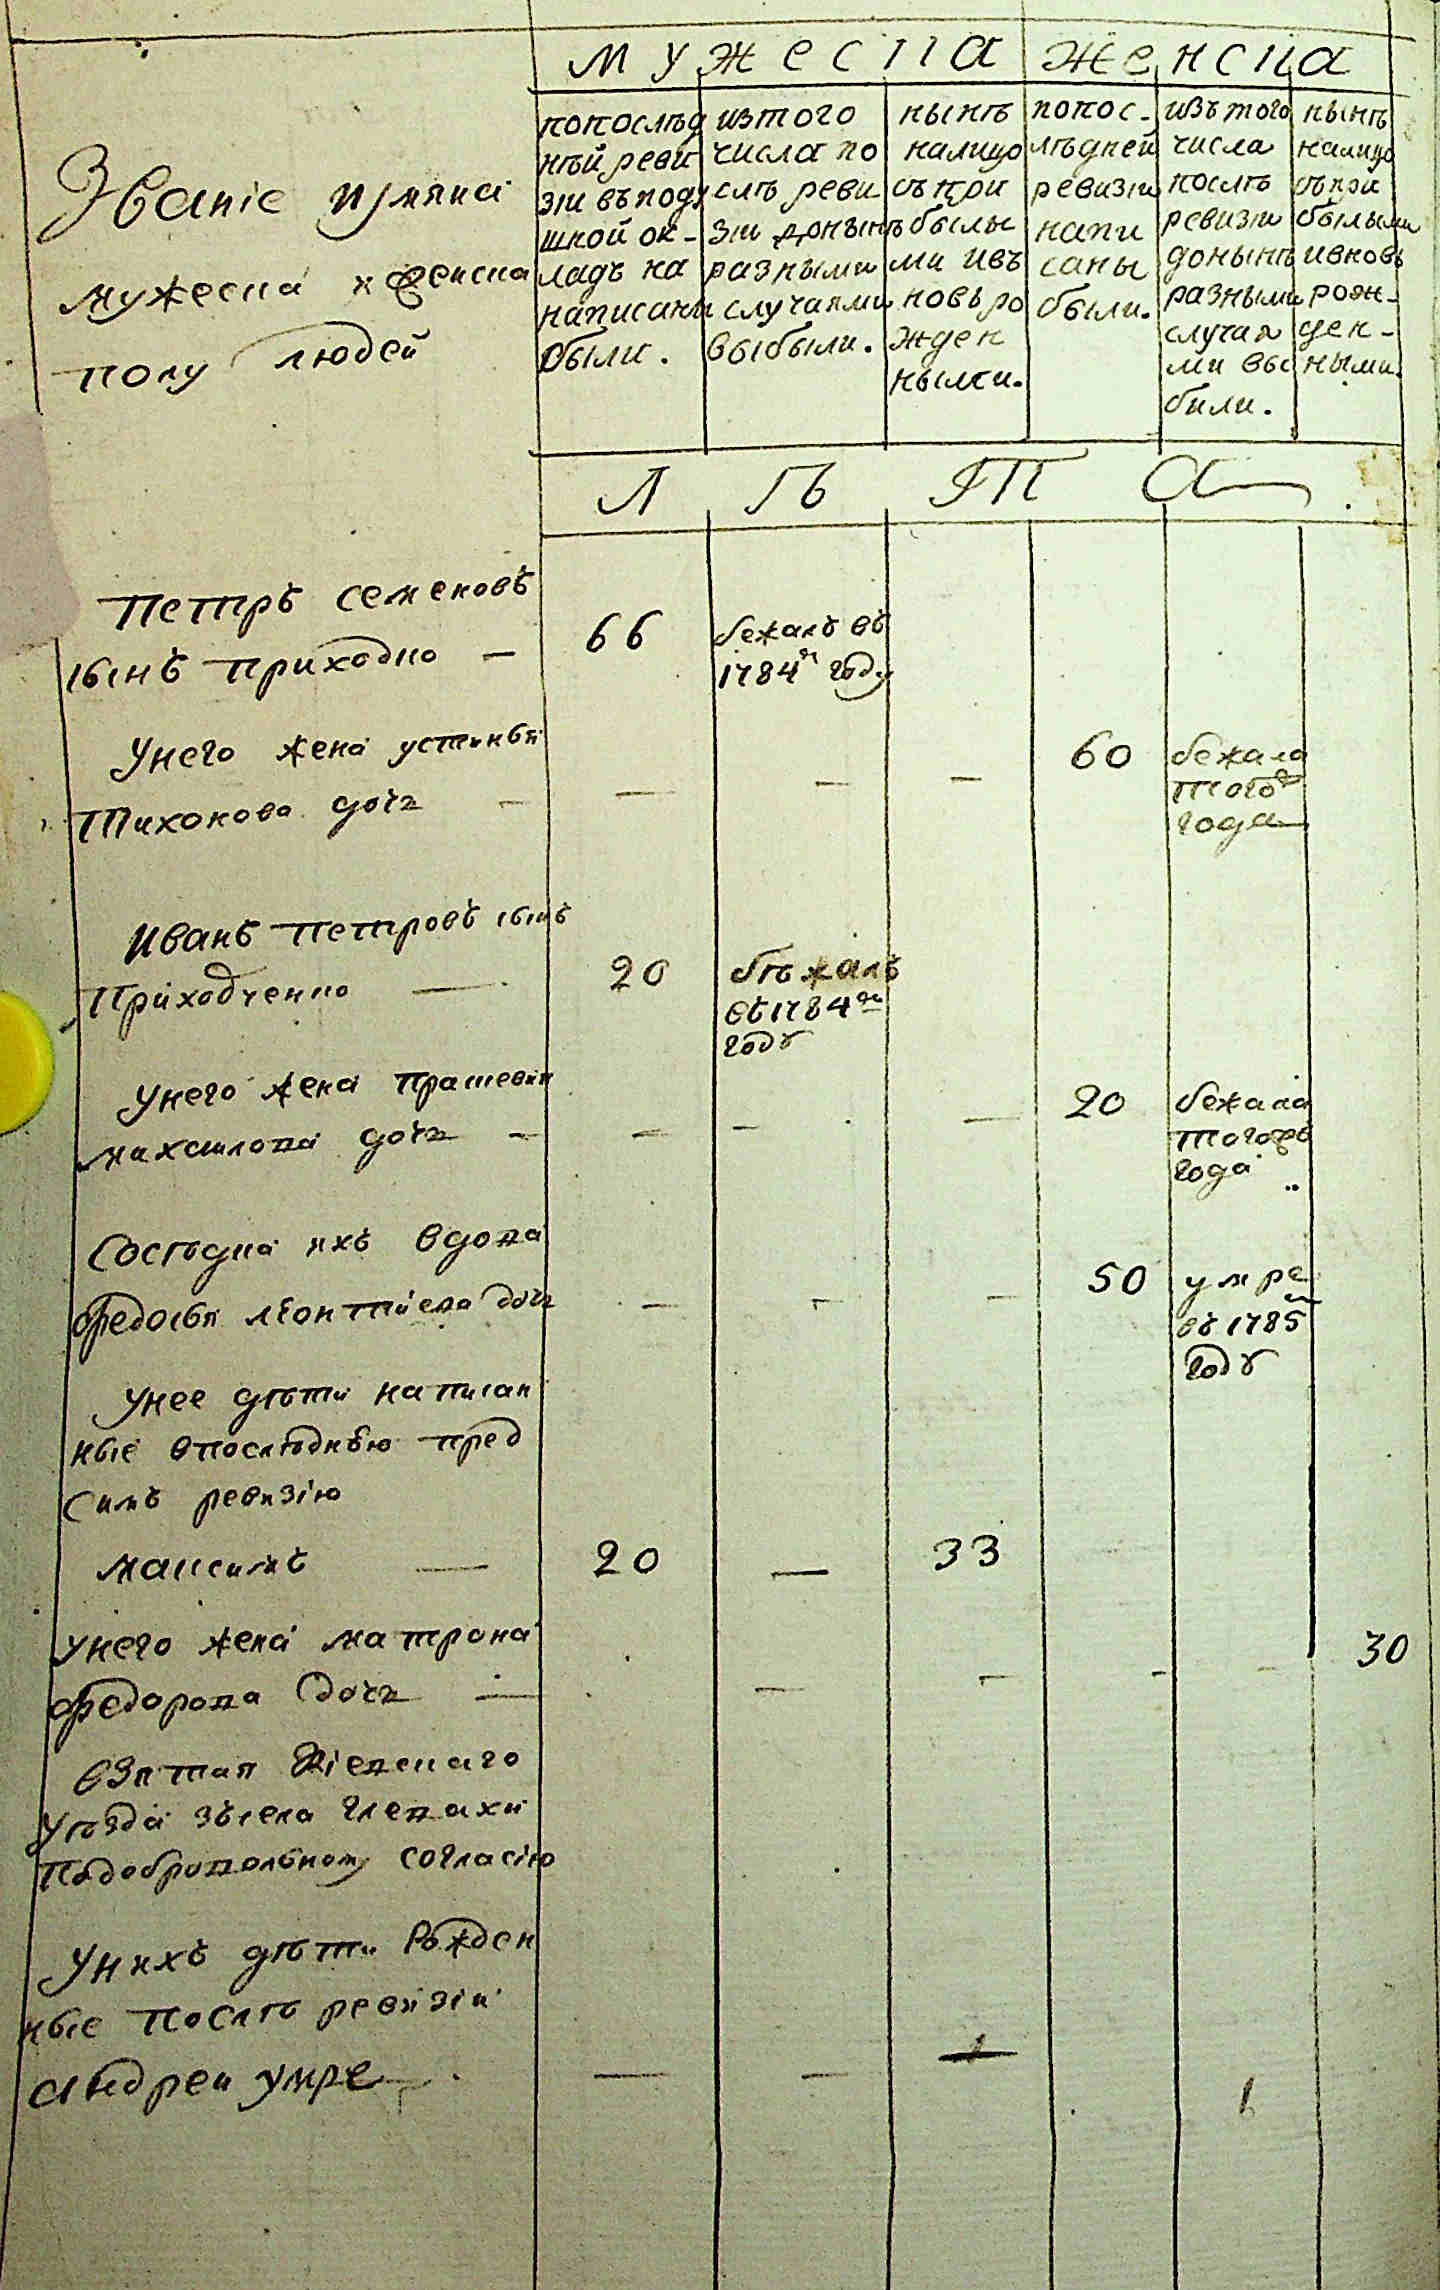 мужеска женска
Званіе и имяна
мужеска и женска
полу людей
попослѣд
нѣй реви
зіи въ поду
шной ок-
ладъ на
написаны
были.
изтого
числа по
слѣ реви
зіи донынѣ
разными
случаями
выбыли.
нынѣ
налицо
съ при
былы
ми ивъ
новь ро
жден
ными.
попос-
лѣдней
ревизіи
напи
саны
были.
изъ того
числа
послѣ
ревизіи
донынѣ
разными
случая
ми вы
били.
нынѣ
налицо
съ при
былыми
ивновь
рожн-
ден-
ными.
Л Ѣ Т А
Петръ Семеновъ
сынъ Приходко — 66 бежалъ въ
1784м году
Унего жена устинья
Тихонова дочь — — — — 60 бежала
тогожъ
года
Иванъ Петровъ сынъ
Приходченко — 20 бѣжалъ
въ 1784м
году
Унего жена Прасковія
михайлова дочь — — — — 20 бежала
тогожъ
года
Сосѣдка ихъ вдова
Федосья леонтіева дочь — — — 50 умре
въ 1785м
году
Унее дѣти написан
ные впослѣднѣю пред
симъ ревизію
максимъ — 20 — 33
унего жена матрона
Федорова дочь — — — — — 30
взятая Кіевскаго
уѣзда зъсела Глевахи
подобровольному согласію
Унихъ дѣти рожден
ные послѣ ревизіи
андреи умре — — — 1
1